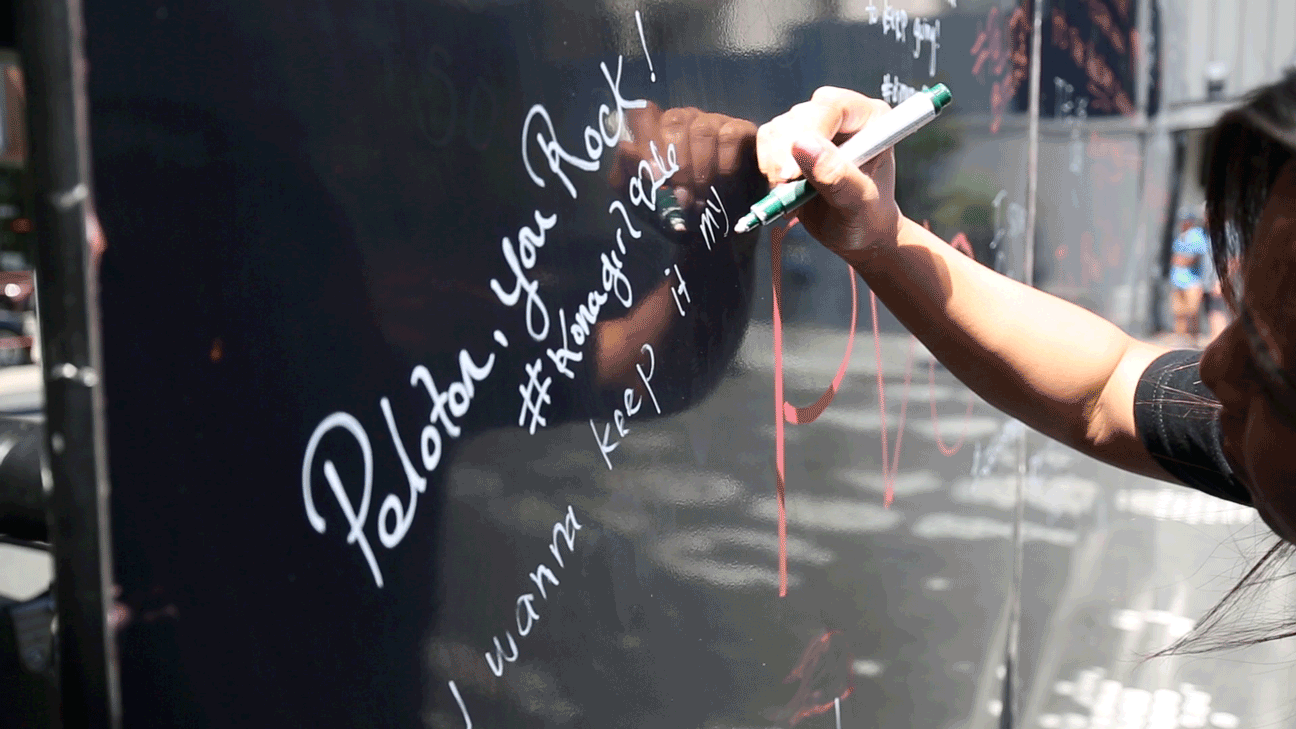 Peloton, you Rock!
#Konagirl926
I wanna keep it my
to keep going!